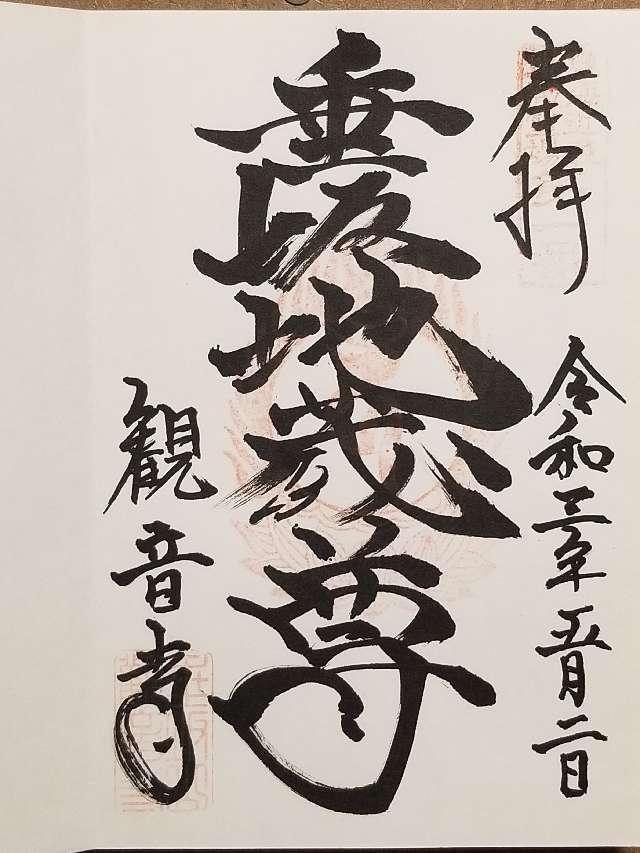 奉拝
令和三年五月二日
垂坂地蔵尊
観音寺